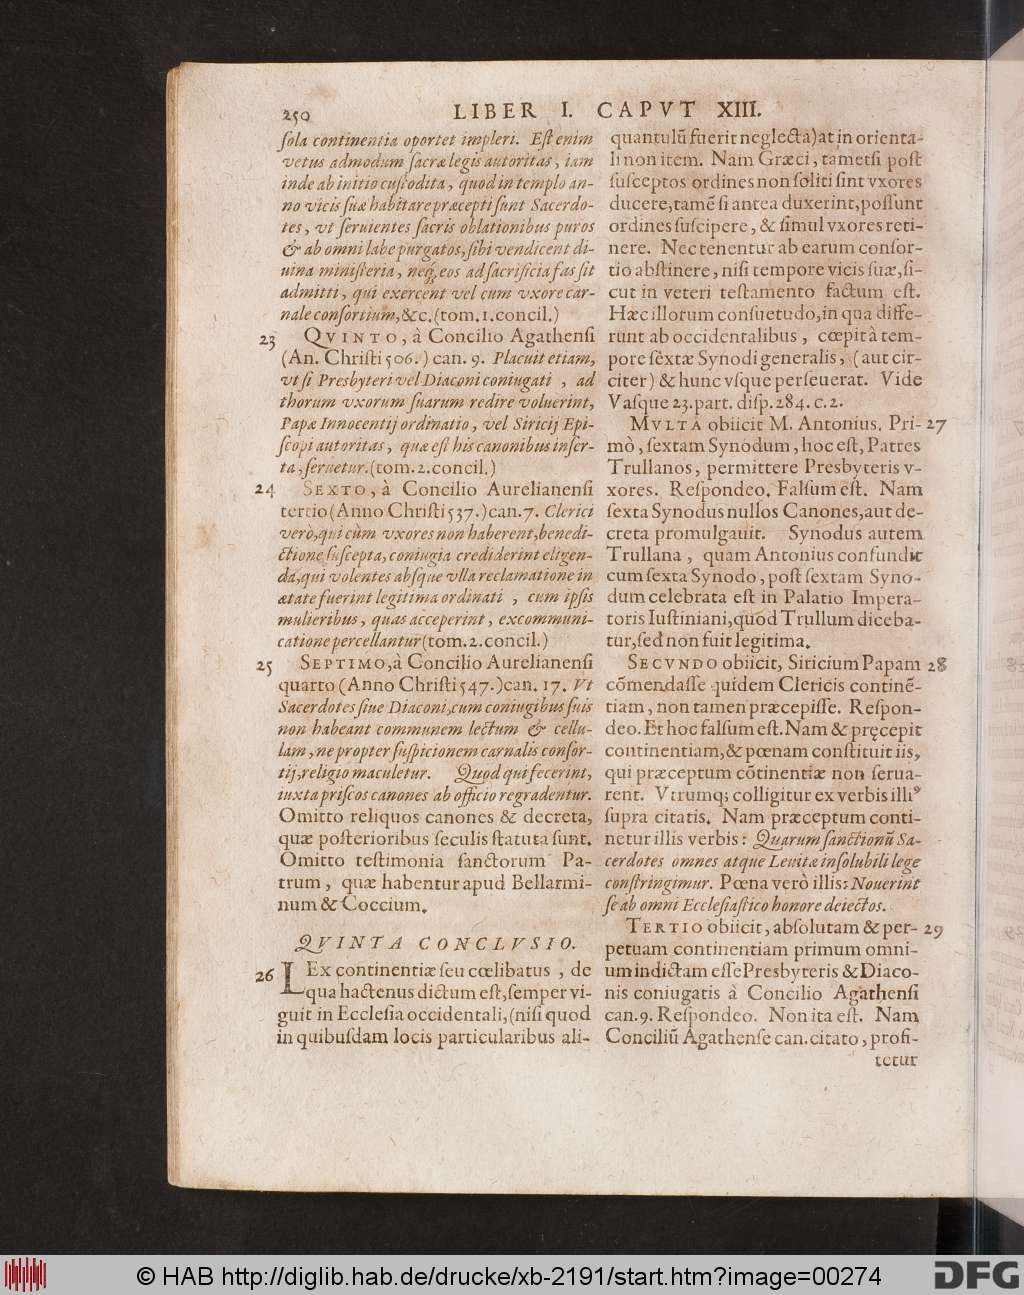 250 LIBER I. CAPVT XIII.
ſola continentia oportet impleri. Eſt enim
vetus admodum ſacræ legis autoritas, iam
inde ab initio cuſtodita, quod in templo an-
no vicis ſuæ habitare præcepti ſunt Sacerdo-
tes, vt ſeruientes ſacris oblationibus puros
& ab omni labe purgatos, ſibi vendicent di-
uina miniſteria, neq; eos ad ſacrificia fas ſit
admitti, qui exercent vel cum vxore car-
nale conſortium, &c. (tom. 1. concil.)
23 QVINTO, à Concilio Agathenſi
(An. Chriſti 506.) can. 9. Placuit etiam,
vt ſi Presbyteri vel Diaconi coniugati , ad
thorum vxorum ſuarum redire voluerint,
Papæ Innocentij ordinatio, vel Siricij Epi-
ſcopi autoritas, quæ eſt his canonibus inſer-
ta, ſeruetur. (tom. 2. concil.)
24 SEXTO, à Concilio Aurelianenſi
tertio (Anno Chriſti 537.) can. 7. Clerici
verò, qui cùm vxores non haberent, benedi-
ctione ſuſcepta, coniugia crediderint eligen-
da, qui volentes abſque vlla reclamatione in
ætate fuerint legitima ordinati , cum ipſis
mulieribus, quas acceperint, excommuni-
catione percellantur (tom. 2. concil.)
25 SEPTIMO, à Concilio Aurelianenſi
quarto (Anno Chriſti 547.) can. 17. Vt
Sacerdotes ſiue Diaconi, cum coniugibus ſuis
non habeant communem lectum & cellu-
lam, ne propter ſuſpicionem carnalis conſor-
tij, religio maculetur. Quod qui fecerint,
iuxta priſcos canones ab officio regradentur.
Omitto reliquos canones & decreta,
quæ poſterioribus ſeculis ſtatuta ſunt.
Omitto teſtimonia ſanctorum Pa-
trum, quæ habentur apud Bellarmi-
num & Coccium.
QVINTA CONCLVSIO.
26 LEx continentiæ ſeu cœlibatus , de
qua hactenus dictum eſt, ſemper vi-
guit in Eccleſia occidentali, (niſi quod
in quibuſdam locis particularibus ali-
quantulũ fuerit neglecta) at in orienta-
li non item. Nam Græci, tametſi poſt
ſuſceptos ordines non ſoliti ſint vxores
ducere, tamẽ ſi antea duxerint, poſſunt
ordines ſuſcipere, & ſimul vxores reti-
nere. Nec tenentur ab earum conſor-
tio abſtinere, niſi tempore vicis ſuæ, ſi-
cut in veteri teſtamento factum eſt.
Hæc illorum conſuetudo, in qua diffe-
runt ab occidentalibus, cœpit à tem-
pore ſextæ Synodi generalis, (aut cir-
citer) & hunc vſque perſeuerat. Vide
Vaſque 23. part. diſp. 284. c. 2.
MVLTA obiicit M. Antonius. Pri- 27
mò, ſextam Synodum, hoc eſt, Patres
Trullanos, permittere Presbyteris v-
xores. Reſpondeo. Falſum eſt. Nam
ſexta Synodus nullos Canones, aut de-
creta promulgauit. Synodus autem
Trullana, quam Antonius confundit
cum ſexta Synodo, poſt ſextam Syno-
dum celebrata eſt in Palatio Impera-
toris Iuſtiniani, quod Trullum diceba-
tur, ſed non fuit legitima.
SECVNDO obiicit, Siricium Papam 28
cõmendaſſe quidem Clericis continẽ-
tiam, non tamen præcepiſſe. Reſpon-
deo. Et hoc falſum eſt. Nam & pręcepit
continentiam, & pœnam conſtituit iis,
qui præceptum cõtinentiæ non ſerua-
rent. Vtrumq; colligitur ex verbis illiꝰ
ſupra citatis. Nam præceptum conti-
netur illis verbis: Quarum ſanctionũ Sa-
cerdotes omnes atque Leuitæ inſolubili lege
conſtringimur. Pœna verò illis: Nouerint
ſe ab omni Eccleſiaſtico honore deiectos.
TERTIO obiicit, abſolutam & per- 29
petuam continentiam primum omni-
um indictam eſſe Presbyteris & Diaco-
nis coniugatis à Concilio Agathenſi
can. 9. Reſpondeo. Non ita eſt. Nam
Conciliũ Agathenſe can. citato, profi-
tetur
© HAB http://diglib.hab.de/drucke/xb-2191/start.htm?image=00274
DFG